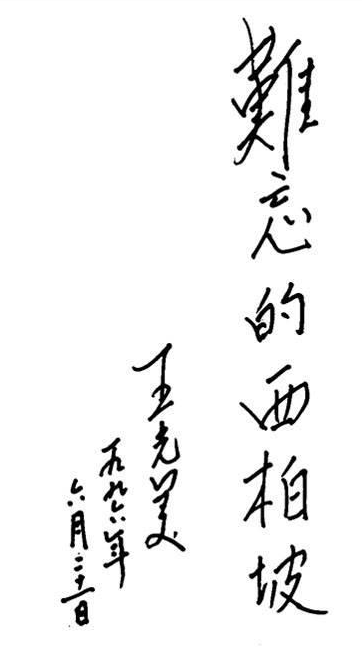 難忘的西柏坡
王光美
一九九六年
六月二十一日